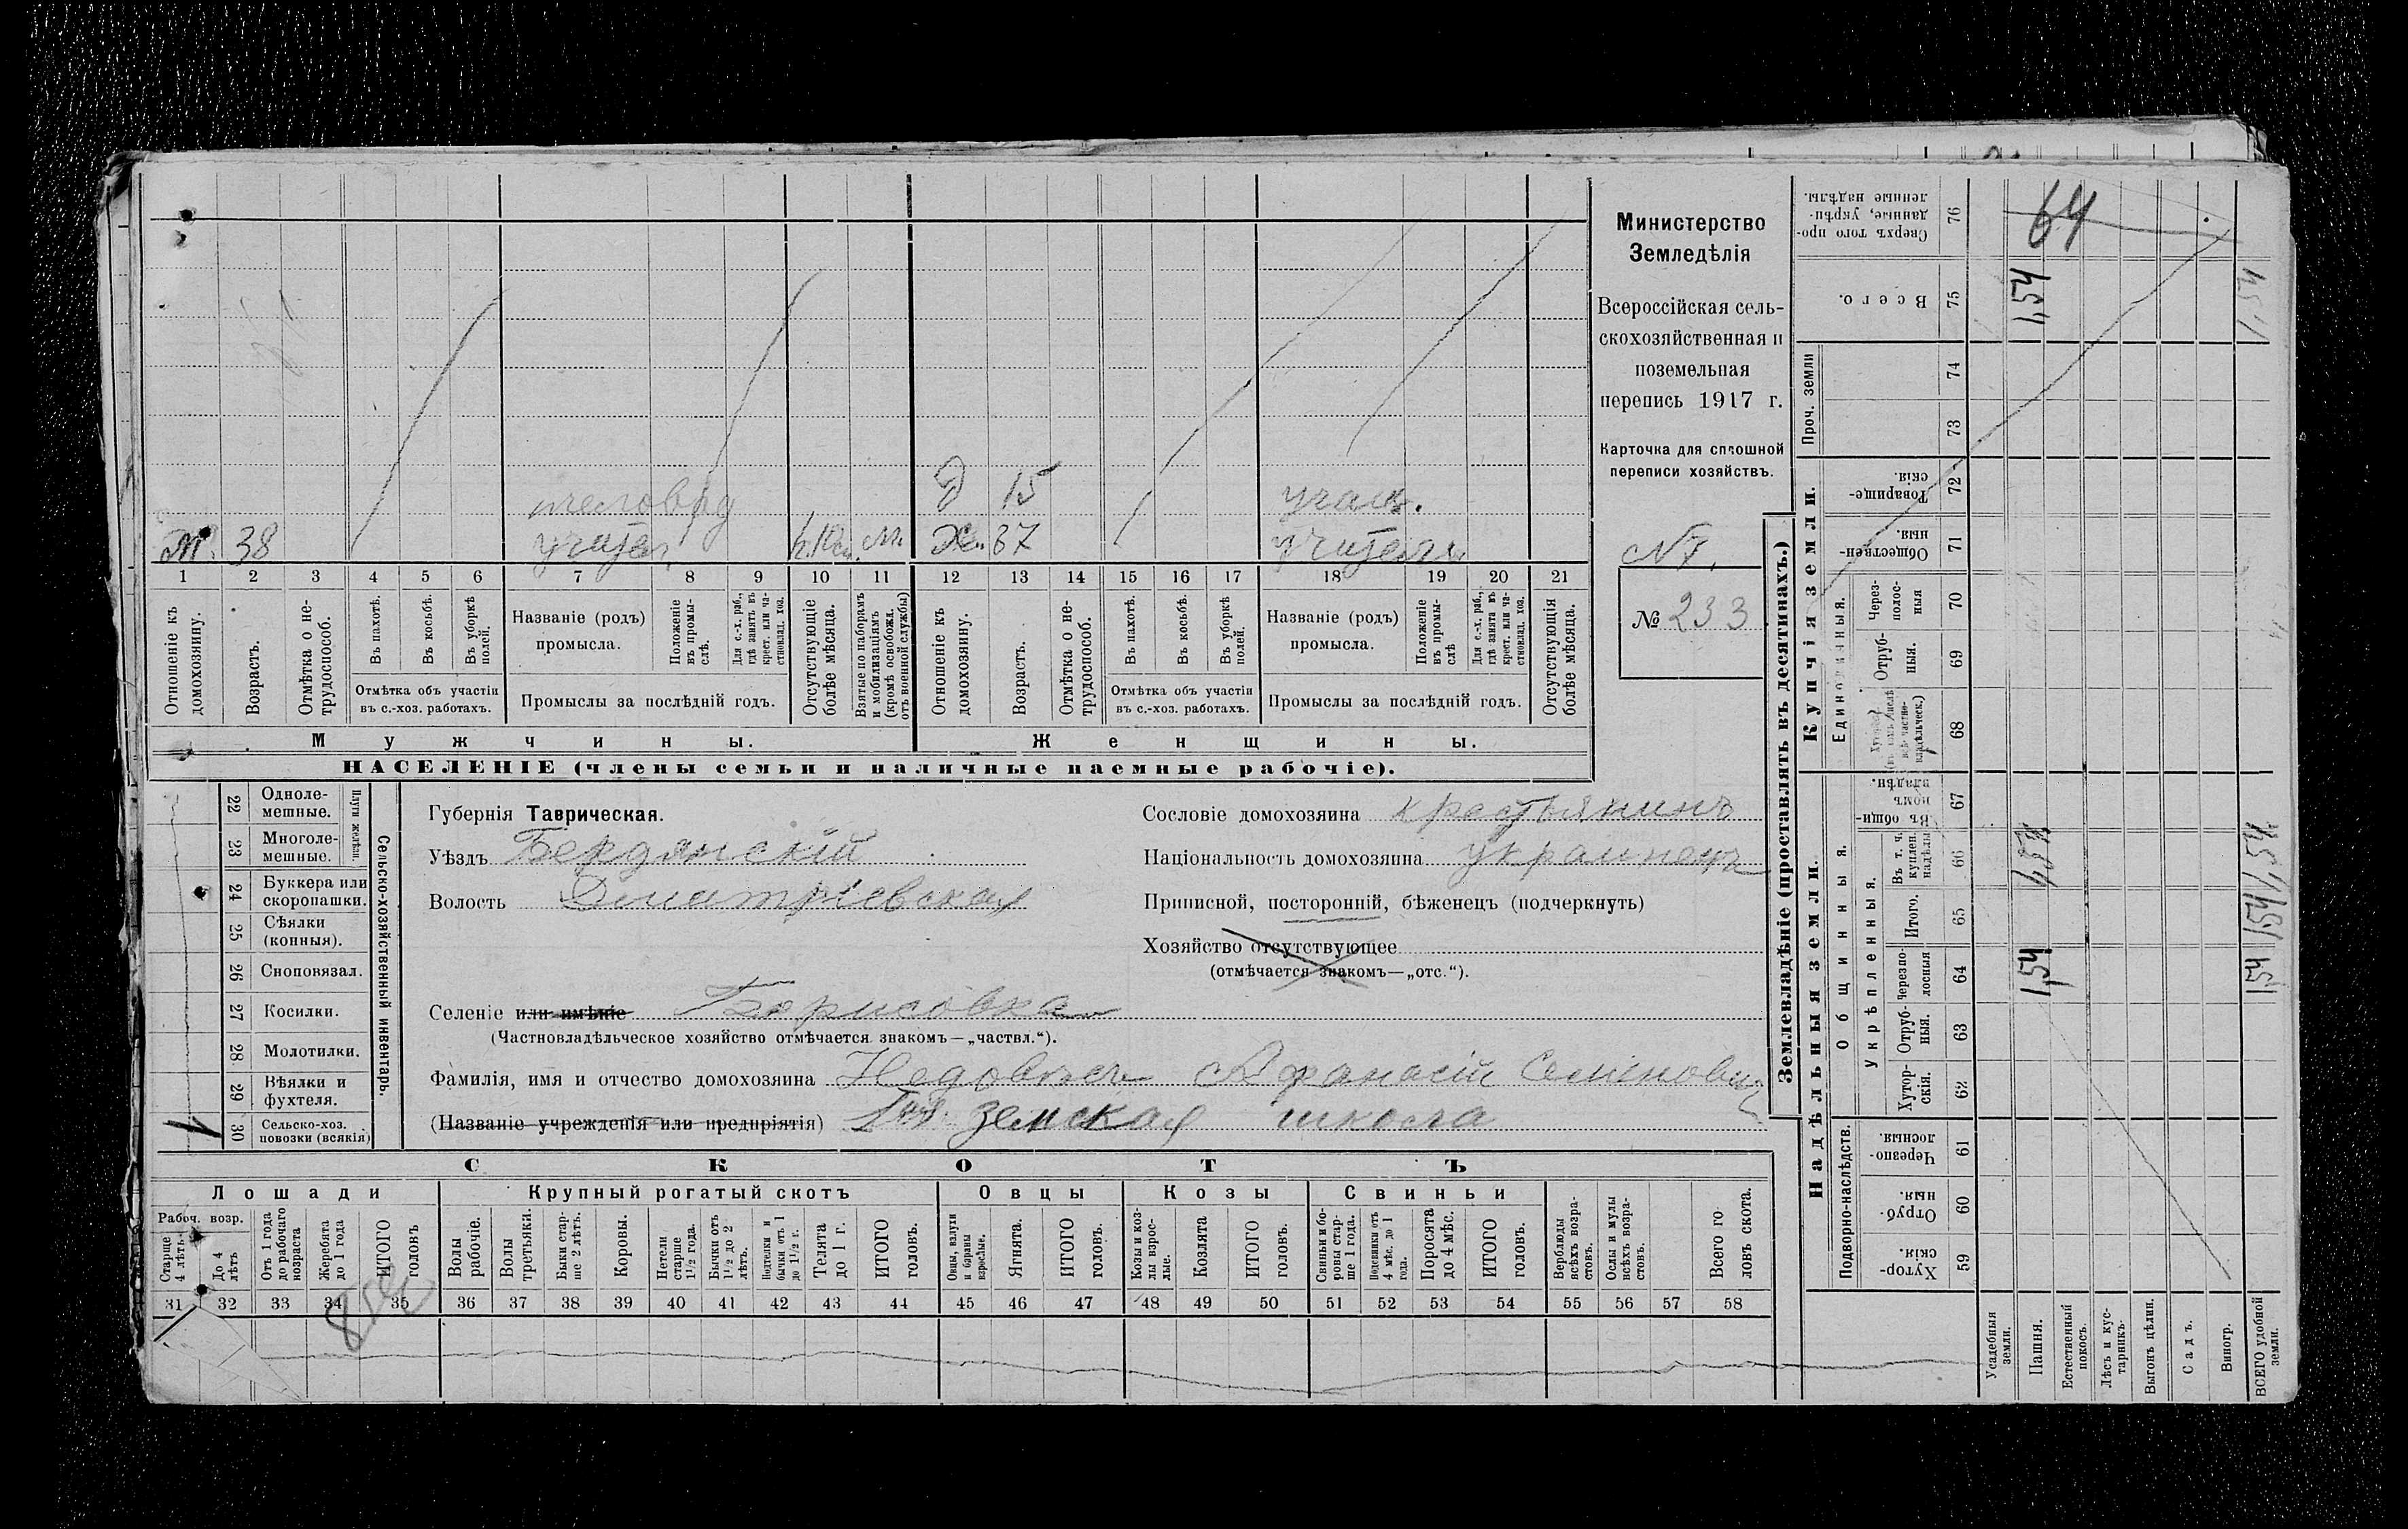 Министерство
Земледѣлія
Всероссійская сель-
скохозяйственная и
поземельная
перепись 1917 г.
Карточка для сплошной
переписи хозяйствъ.
№ 233
д 15 учащ.
М. 38 учител Ж. 37
1 2 3 4 5 6 7 8 9 10 11 12 13 14 15 16 17 18 19 20 21
Отношеніе къ домохозяину.
Возрастъ.
Отмѣтка о не-трудоспособ.
Въ пахотѣ.
Въ косьбѣ.
Въ уборкѣ полей.
Отмѣтка объ участіи
въ с.-хоз. работахъ.
Названіе (родъ)
промысла.
Положеніе въ промы-слѣ.
Для с.-х. раб., гдѣ занятъ въ крест. или ча-стновлад. хоз.
Промыслы за послѣдній годъ.
Отсутствующіе болѣе мѣсяца.
Взятые по наборамъ и мобилизаціямъ (кромѣ освобожд. отъ военной службы)
Отношеніе къ домохозяину.
Возрастъ.
Отмѣтка о не-трудоспособ.
Въ пахотѣ.
Въ косьбѣ.
Въ уборкѣ полей.
Отмѣтка объ участіи
въ с.-хоз. работахъ.
Названіе (родъ)
промысла.
Положеніе въ промы-слѣ
Для с.-х. раб., гдѣ занята въ крест. или ча-стновлад. хоз.
Промыслы за послѣдній годъ.
Отсутствующія болѣе мѣсяца.
Мужчины. Женщины.
НАСЕЛЕНІЕ (члены семьи и наличные наемные рабочіе).
Сельско-хозяйственный инвентарь.
Плуги желѣзн.
22 Одноле-мешные.
23 Многоле-мешные.
24 Буккера или скоропашки.
25 Сѣялки (конныя).
26 Сноповязал.
27 Косилки.
28 Молотилки.
29 Вѣялки и фухтеля.
30 Сельско-хоз. повозки (всякія)
Губернія Таврическая.
Уѣздъ Бердянскій
Волость Дмитріевская
Сословіе домохозяина крестьянинъ
Національность домохозяина украинецъ
Приписной, посторонній, бѣженецъ (подчеркнуть)
Хозяйство отсутствующее
(отмѣчается знакомъ—„отс.“).
Селеніе или имѣніе Борисовка
(Частновладѣльческое хозяйство отмѣчается знакомъ—„частвл.“).
Фамилія, имя и отчество домохозяина Афанасій Семенович
(Названіе учрежденія или предпріятія) земская школа
СКОТЪ
Лошади Крупный рогатый скотъ Овцы Козы Свиньи
Рабоч. возр.
Старше 4 лѣтъ
До 4 лѣтъ
Отъ 1 года до рабочаго возраста
Жеребята до 1 года
ИТОГО головъ
Волы рабочіе.
Волы третьяки.
Быки стар-ше 2 лѣтъ.
Коровы.
Нетели старше 1 1/2 года.
Бычки отъ 1 1/2 до 2 лѣтъ.
Подтелки и бычки отъ 1 до 1 1/2 г.
Телята до 1 г.
ИТОГО головъ.
Овцы, валухи и бараны взрослые.
Ягнята.
ИТОГО головъ.
Козы и коз-лы взрос-лые.
Козлята
ИТОГО головъ.
Свиньи и бо-ровы стар-ше 1 года.
Подсвинки отъ 4 мѣс. до 1 года.
Поросята до 4 мѣс.
ИТОГО головъ.
Верблюды всѣхъ возра-стовъ.
Ослы и мулы всѣхъ возра-стовъ.
Всего го-ловъ скота.
31 32 33 34 35 36 37 38 39 40 41 42 43 44 45 46 47 48 49 50 51 52 53 54 55 56 57 58
Землевладѣніе (проставлять въ десятинахъ.)
Надѣльныя земли.
Купчія земли.
Проч. земли
Подворно-наслѣдств.
Общинныя.
Укрѣпленныя.
Единоличныя.
59 Хутор-скія.
60 Отруб-ныя.
61 Черезпо-лосныя
62 Хутор-скія.
63 Отруб-ныя.
64 Черезпо-лосныя
65 Итого.
66 Въ т. ч. куплен. надѣлы
67 Въ общи-номъ владѣн.
68
69 Отруб-ныя.
70 Через-полос-ныя
71 Обществен-ныя.
72 Товарище-скія.
73
74
75 Всего.
76 Сверхъ того про-данные, укрѣп-ленные надѣлы.
Усадебныя земли.
Пашня.
Естественный покосъ.
Лѣсъ и кус-тарникъ.
Выгонъ цѣлин.
Садъ.
Виногр.
ВСЕГО удобной земли.
64
1,54
1,54
1,54
1,54
1,54
1,54
1,54